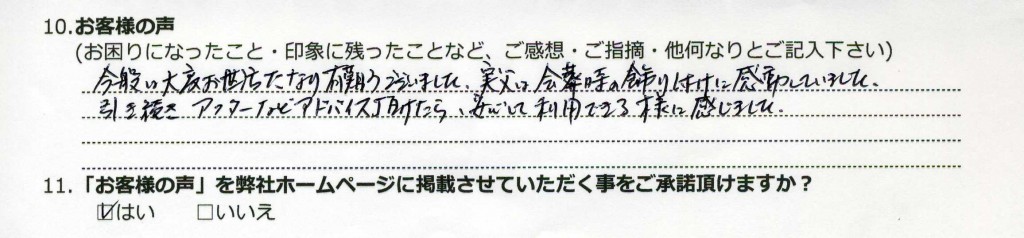 10.お客様の声
(お困りになったこと・印象に残ったことなど、ご感想・ご指摘・他何なりとご記入下さい)
今般は大変お世話になり有難うございました。実父は会葬時の飾り付けに感動していました。
引き続き アフターなどアドバイス頂けたら、安心して利用できる様に感じました。
11.「お客様の声」を弊社ホームページに掲載させていただく事をご承諾頂けますか？
☑はい　□いいえ